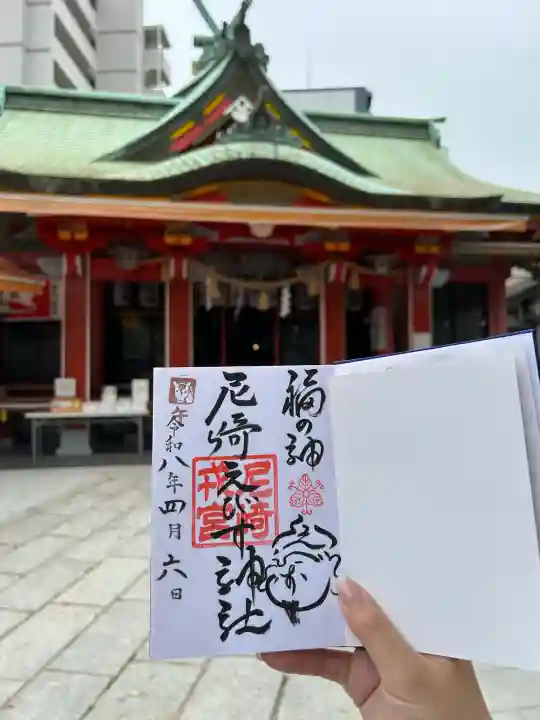 福の神
尼崎えびす神社
尼崎
戎宮
令和八年四月六日